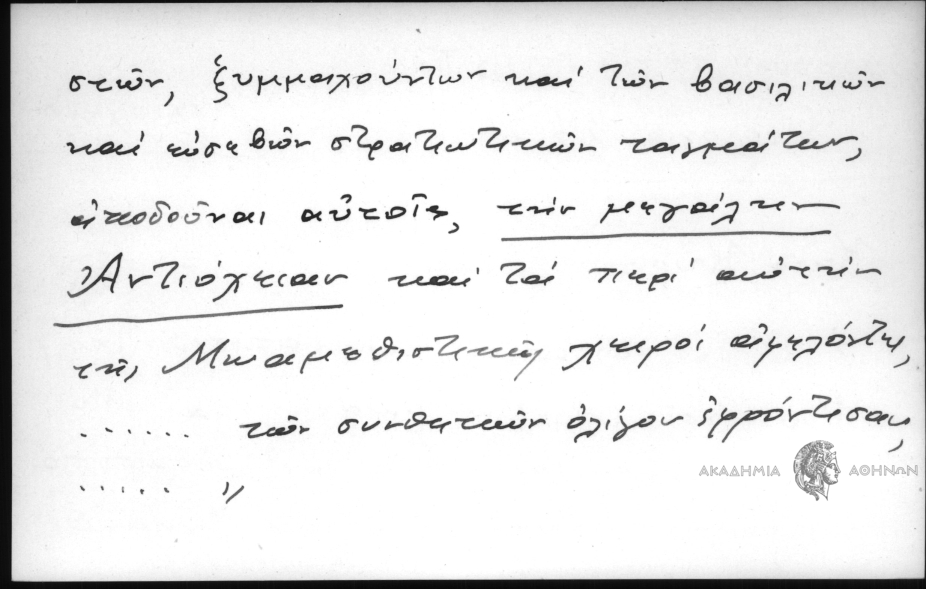 στῶν, ξυμμαχούντων καί τῶν βασιλικῶν
καί εὐσεβῶν στρατιωτικῶν ταγμάτων,
ἀποδοῦναι αὐτοῖς, τήν μεγάλην
Ἀντιόχειαν καί τά περί αὐτήν
τῆς Μωαμεθιστικῆς χειρός ἀφελόντες,
...... τῶν συνθηκῶν ὀλίγον ἐφρόντισαν,
..... "
ΑΚΑΔΗΜΙΑ ΑΘΗΝΩΝ